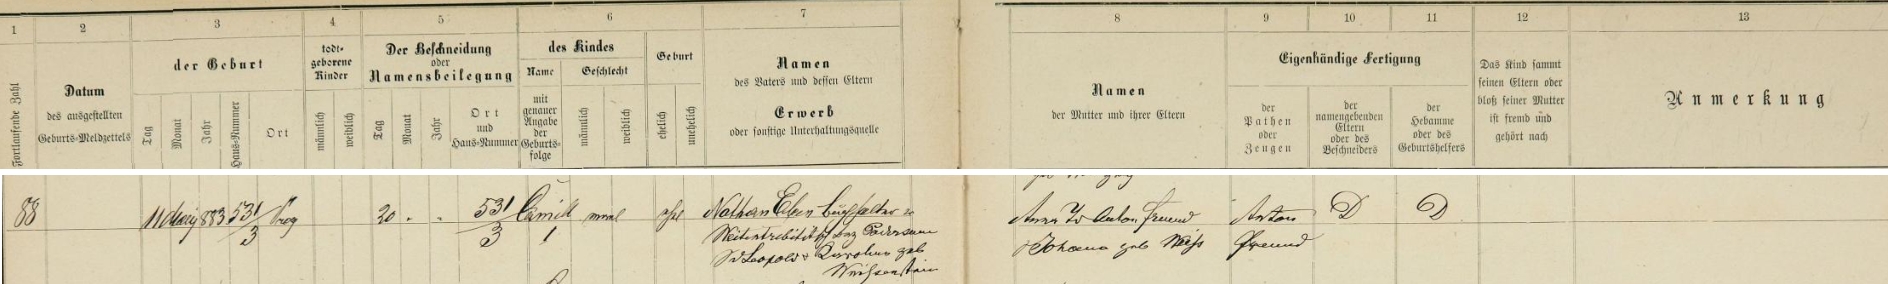 1 2 3 4 5 6 7 8 9 10 11 12 13
Fortlaufende Zahl
Datum
des ausgestellten
Geburts-Meldzettels
der Geburt
Tag Monat Jahr Haus-Nummer Ort
todt-
geborene
Kinder
männlich weiblich
Der Beschneidung
oder
Namensbeilegung
Tag Monat Jahr
Ort
und
Haus-Nummer
des Kindes
Name Geschlecht
mit
genauer
Angabe
der
Geburts-
folge
männlich weiblich
Geburt
ehelich unehelich
Namen
des Vaters und dessen Eltern
Erwerb
oder sonstige Unterhaltungsquelle
Namen
der Mutter und ihrer Eltern
Eigenhändige Fertigung
der
Pathen
oder
Zeugen
der
namengebenden
Eltern
oder des
Beschneiders
der
Hebamme
oder des
Geburtshelfers
Das Kind sammt
seinen Eltern oder
bloß seiner Mutter
ist fremd und
gehört nach
Anmerkung
88 11 883 531/3 Prag 20 531/3 Camill ehel Nathan Eben Buchhalter
1
Leopold Karoline geb
Anna Anton Freund
Johanna geb Weiss
Anton
Freund
D D